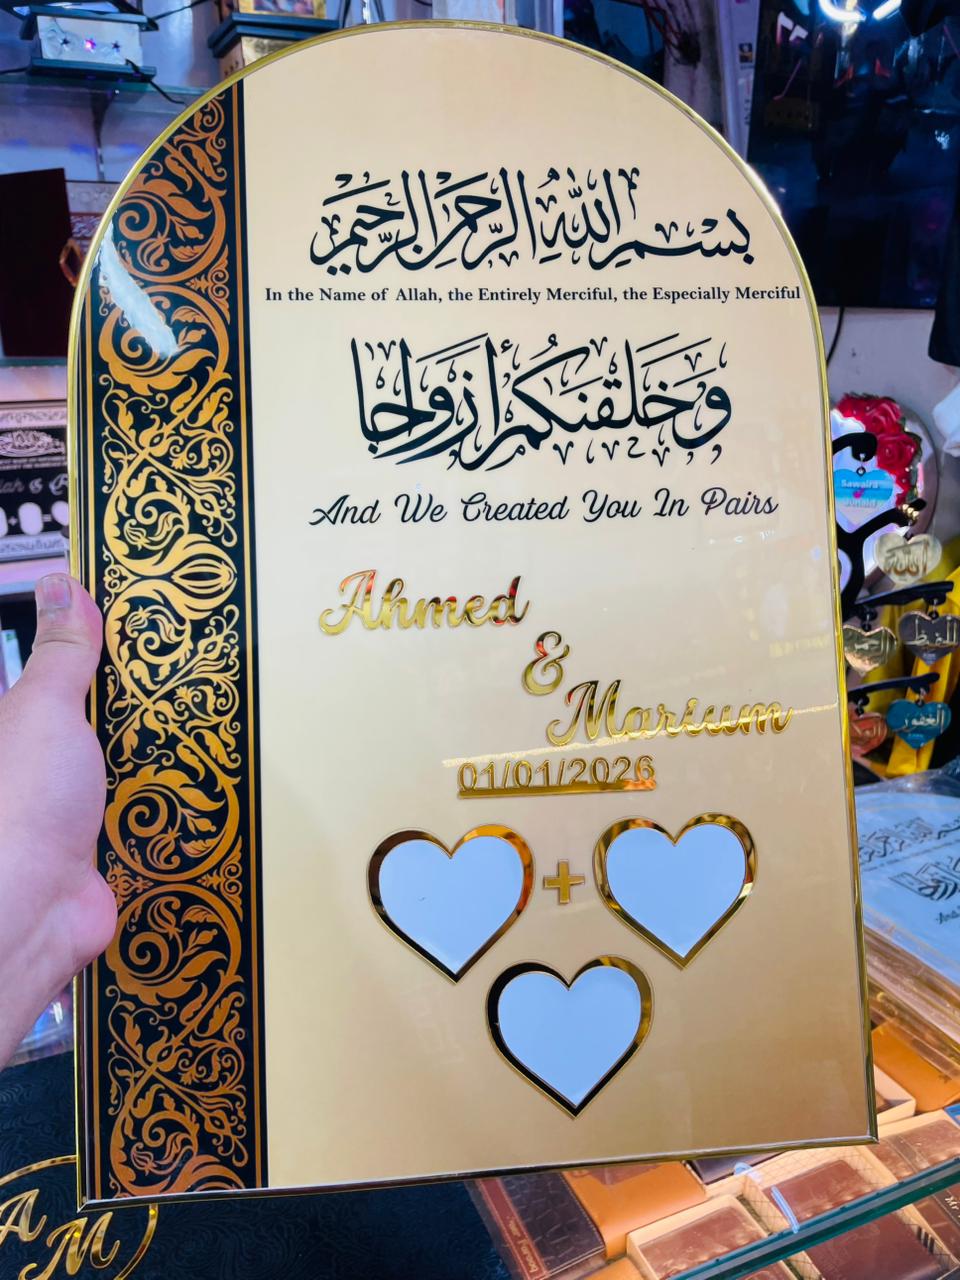 بِسْمِ اللَّهِ الرَّحْمَنِ الرَّحِيمِ
In the Name of Allah, the Entirely Merciful, the Especially Merciful
وخلقنكم أزواجا
And We Created You In Pairs
Ahmed
&
Marium
01/01/2026
+
Sawaira
Junaid
الله
الحفيظ
الغفور
A M